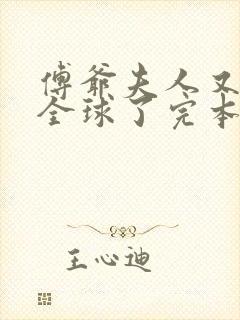 傅爷夫人又
全球了完本
王心迪